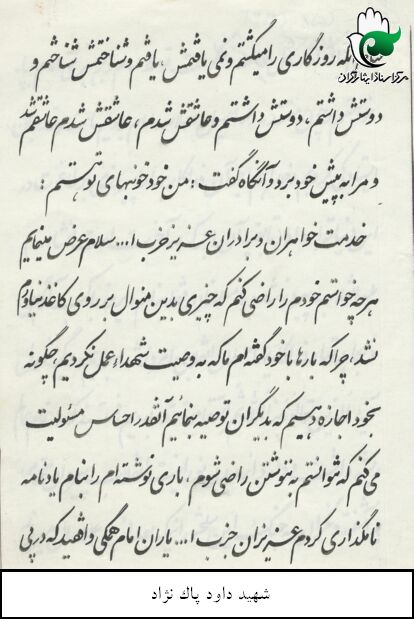 مرکز اسناد ایثارگران
روزگاری را میگشتم و نمی یافتمش، یافتم و شناختمش شناختم و
دوستش داشتم، دوستش داشتم و عاشقش شدم، عاشقش شدم عاشقم شد
و مرا به پیش خود برد و آنگاه گفت: من خود خونبهای تو هستم:
خدمت خواهران و برادران عزیز حزب ا... سلام عرض مینمایم
هر چه خواستم خودم را راضی کنم که چیزی بدین منوال بر روی کاغذ بیاورم
نشد، چرا که بارها با خود گفته ام ما که به وصیت شهداء عمل نکردیم، چگونه
بخود اجازه دهیم که بدیگران توصیه بنمائیم آنقدر احساس مسئولیت
می کنم که نتوانستم به ننوشتن راضی شوم، باری نوشته ام را بنام یادنامه
نامگذاری کردم عزیزان حزب ا... یاران امام همگی واقفید که در پی
شهید داود پاك نژاد